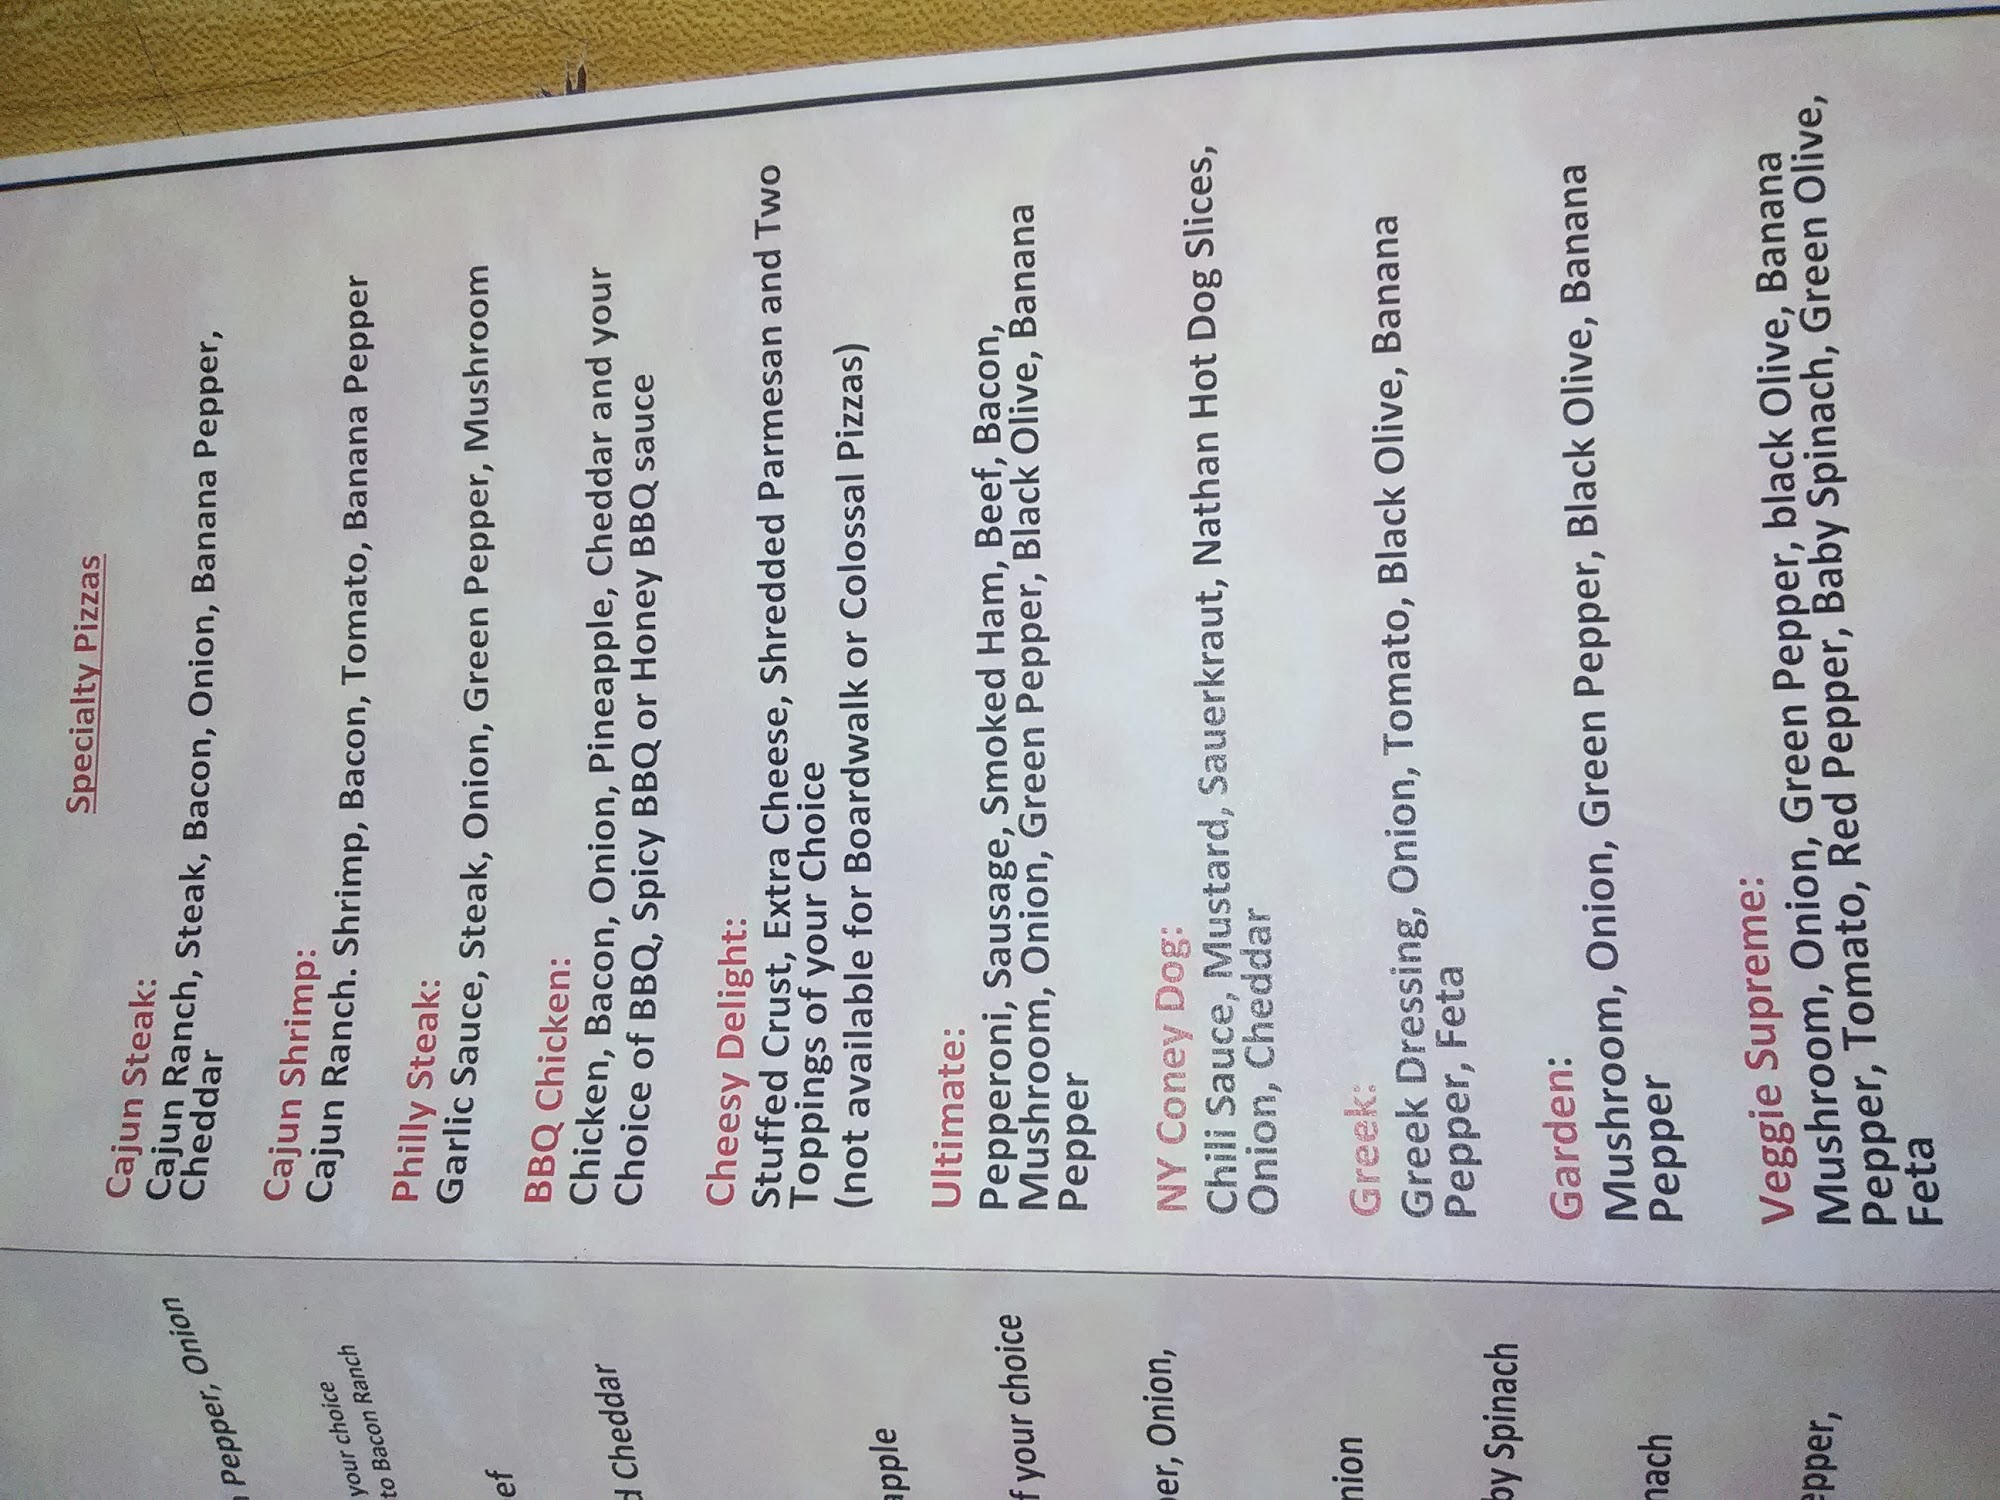 Specialty Pizzas
Cajun Steak:
Cajun Ranch, Steak, Bacon, Onion, Banana Pepper,
Cheddar
Cajun Shrimp:
Cajun Ranch. Shrimp, Bacon, Tomato, Banana Pepper
Philly Steak:
Garlic Sauce, Steak, Onion, Green Pepper, Mushroom
BBQ Chicken:
Chicken, Bacon, Onion, Pineapple, Cheddar and your
Choice of BBQ, Spicy BBQ or Honey BBQ sauce
Cheesy Delight:
Stuffed Crust, Extra Cheese, Shredded Parmesan and Two
Toppings of your Choice
(not available for Boardwalk or Colossal Pizzas)
Ultimate:
Pepperoni, Sausage, Smoked Ham, Beef, Bacon,
Mushroom, Onion, Green Pepper, Black Olive, Banana
Pepper
NY Coney Dog:
Chili Sauce, Mustard, Sauerkraut, Nathan Hot Dog Slices,
Onion, Cheddar
Greek:
Greek Dressing, Onion, Tomato, Black Olive, Banana
Pepper, Feta
Garden:
Mushroom, Onion, Green Pepper, Black Olive, Banana
Pepper
Veggie Supreme:
Mushroom, Onion, Green Pepper, black Olive, Banana
Pepper, Tomato, Red Pepper, Baby Spinach, Green Olive,
Feta
Pepper, Onion
your choice
to Bacon Ranch
Cheddar
your choice
Onion,
Spinach